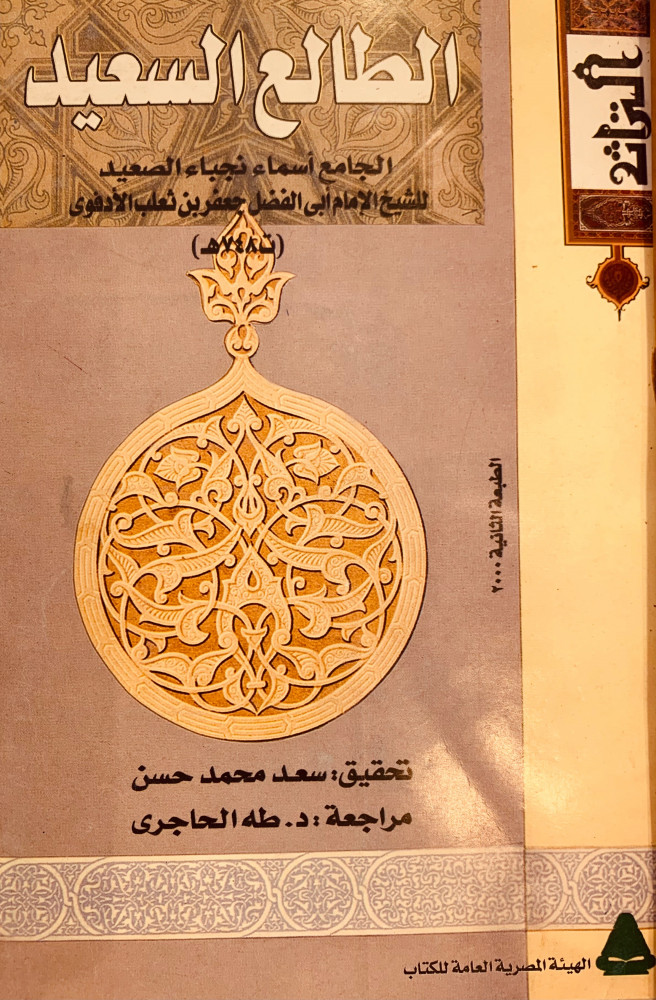 الطالع السعيد
الجامع أسماء نجباء الصعيد
للشيخ الإمام أبى الفضل جعفر بن ثعلب الأدفوى
(ت٧٤٨هـ)
التراث
الطبعة الثانية ٢٠٠٠
تحقيق: سعد محمد حسن
مراجعة: د. طه الحاجرى
الهيئة المصرية العامة للكتاب